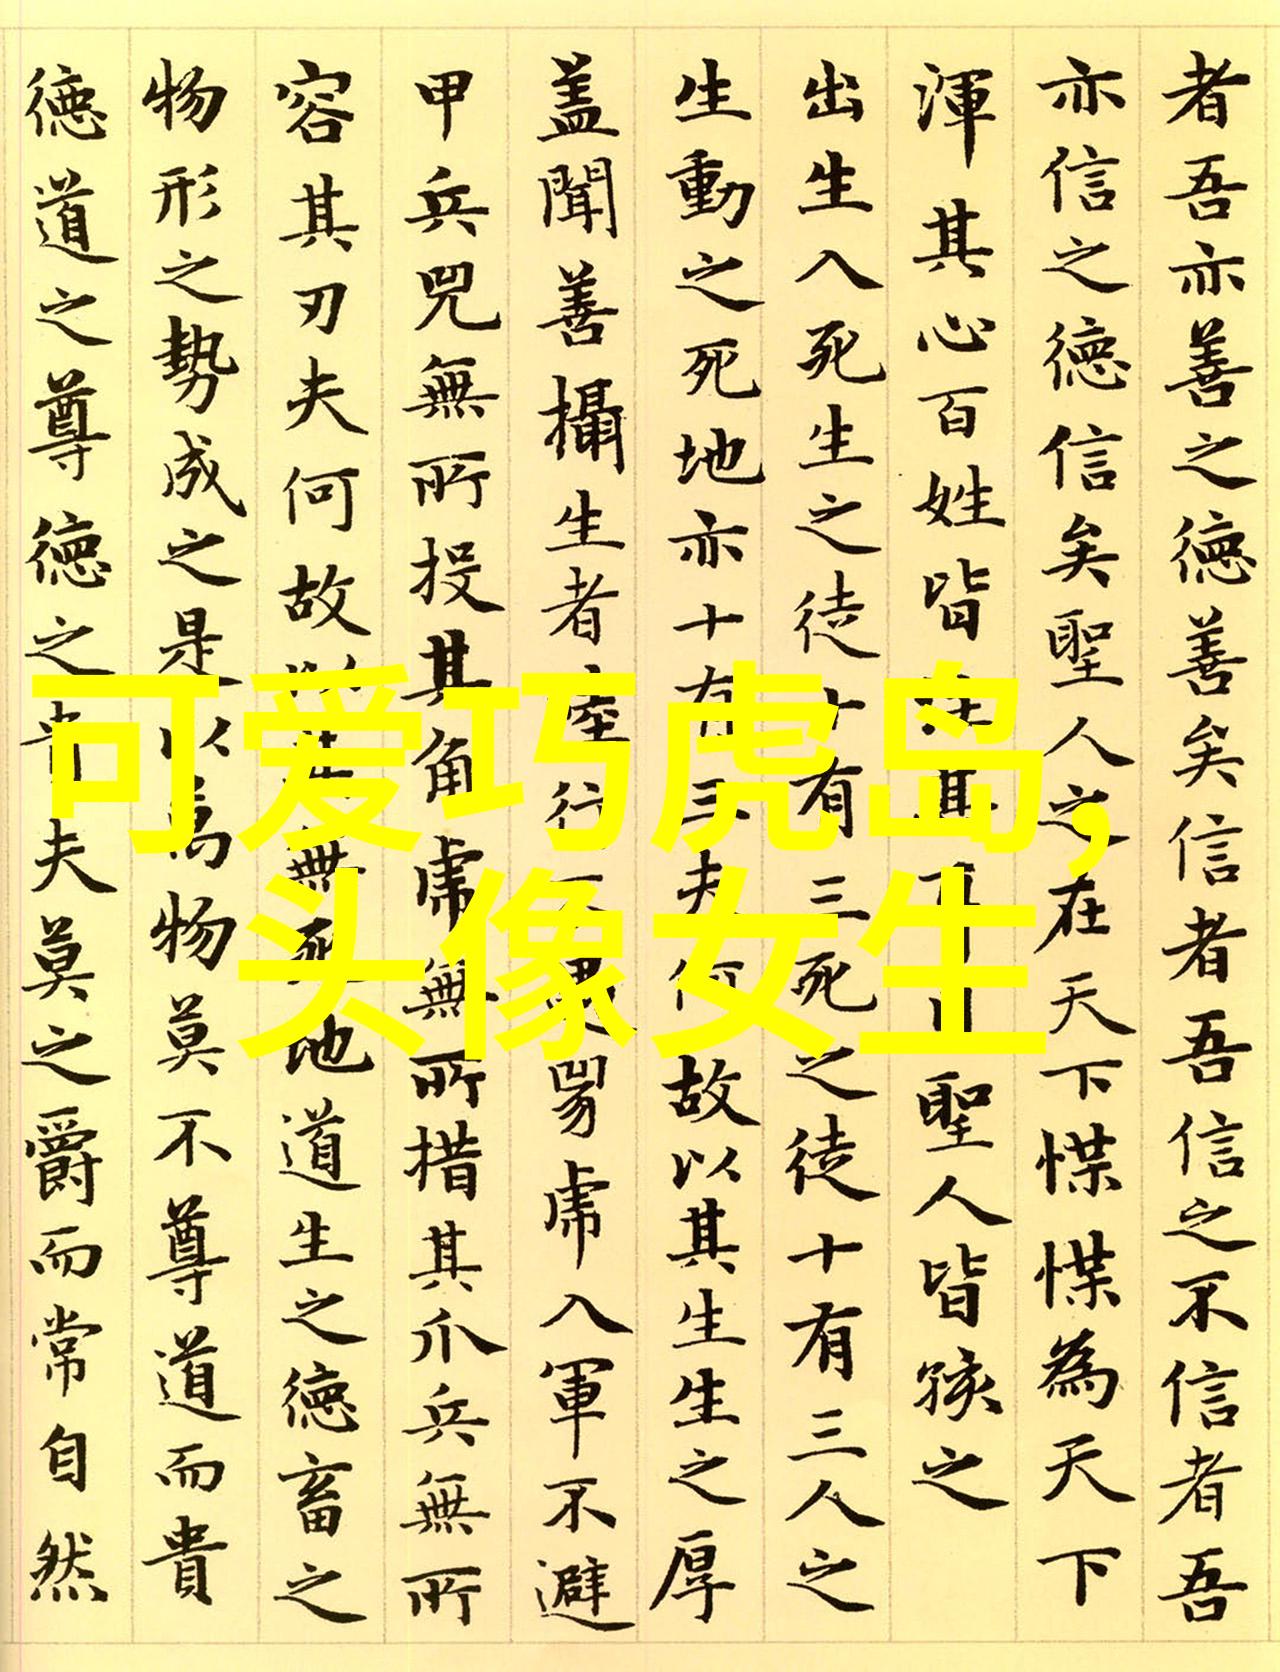 可爱巧虎岛,
头像女生
者吾亦善之德善矣信者吾信之不信者吾
亦信之德信矣聖人之在天下惵惵為天下
渾其心百姓皆其聖人皆孩之
出生入死生之徒十有三死之徒十有三人之
生動之死地亦十有三夫何故以其生生之厚
蓋聞善攝生者行兕虎入軍不避
甲兵兕無所投其角虎無所措其爪兵無所
容其刃夫何故以其無死地道生之德畜之
物形之勢成之是以萬物莫不尊道而貴
德道之尊德之貴夫莫之爵而常自然